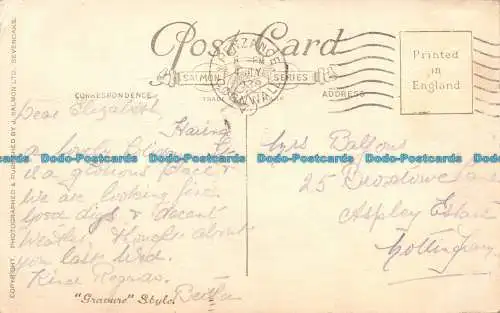 Post Card
PENZANCE
CORNWALL
SALMON SERIES
TRADE
CORRESPONDENCE
ADDRESS
Printed
in
England
COPYRIGHT. PHOTOGRAPHED & PUBLISHED BY J. SALMON LTD. SEVENOAKS.
Dear Elizabeth,
Having
a lovely
is a glorious place &
we are looking fine.
Good digs & decent
Weather. Thought about
you last Wed.
Kind Regards.
Bertha
"Gravure" Style.
Mrs Balfour
25
Aspley Estate
Nottingham
Dodo-Postcards Dodo-Postcards Dodo-Postcards Dodo-Postcards